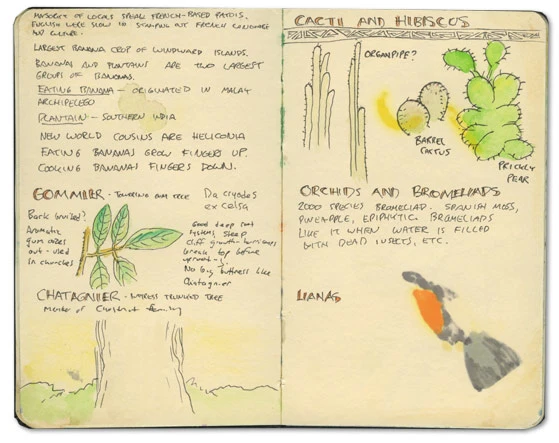 MAJORITY OF LOCALS SPEAK FRENCH-BASED PATOIS.
ENGLISH WERE SLOW TO STAMP OUT FRENCH LANGUAGE
AND CULTURE.
LARGEST BANANA CROP OF WINDWARD ISLANDS.
BANANAS AND PLANTAINS ARE TWO LARGEST
GROUPS OF BANANAS.
EATING BANANA - ORIGINATED IN MALAY
ARCHIPELEGO
PLANTAIN - SOUTHERN INDIA
NEW WORLD COUSINS ARE HELICONIA
EATING BANANAS GROW FINGERS UP.
COOKING BANANAS FINGERS DOWN.
GOMMIER - TOWERING GUM TREE
Dacryodes
excelsa
Bark
Aromatic
gum oozes
out - used
in churches
Good deep root
system, steep
cliff growth. hurricanes
break top before
uprooting.
No big buttress like
Chatagnier
CHATAGNIER - BUTTRESS TRUNKED TREE
Member of Chestnut family
CACTI AND HIBISCUS
ORGANPIPE?
BARREL
CACTUS
PRICKLY
PEAR
ORCHIDS AND BROMELIADS
2000 SPECIES BROMELIAD. SPANISH MOSS,
PINEAPPLE, EPIPHYTIC BROMELIADS
LIKE IT WHEN WATER IS FILLED
WITH DEAD INSECTS, ETC.
LIANAS